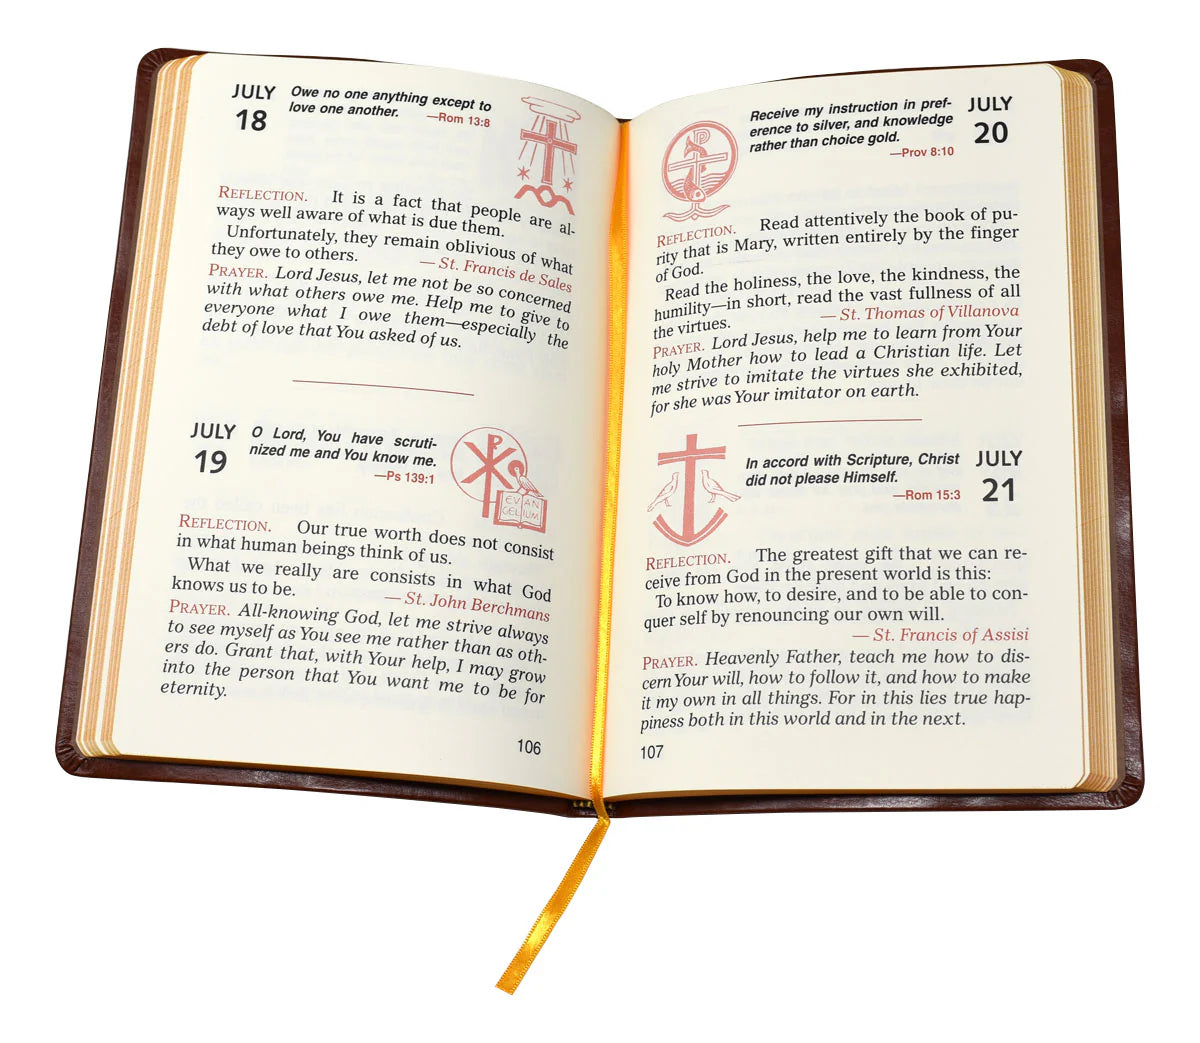 JULY
18
Owe no one anything except to
love one another. —Rom 13:8
REFLECTION. It is a fact that people are al-
ways well aware of what is due them.
Unfortunately, they remain oblivious of what
they owe to others. — St. Francis de Sales
PRAYER. Lord Jesus, let me not be so concerned
with what others owe me. Help me to give to
everyone what I owe them—especially the
debt of love that You asked of us.
JULY
19
O Lord, You have scruti-
nized me and You know me.
—Ps 139:1
EV AN
GEL IUM
REFLECTION. Our true worth does not consist
in what human beings think of us.
What we really are consists in what God
knows us to be. — St. John Berchmans
PRAYER. All-knowing God, let me strive always
to see myself as You see me rather than as oth-
ers do. Grant that, with Your help, I may grow
into the person that You want me to be for
eternity.
106
Receive my instruction in pref-
erence to silver, and knowledge
rather than choice gold.
—Prov 8:10
JULY
20
REFLECTION. Read attentively the book of pu-
rity that is Mary, written entirely by the finger
of God.
Read the holiness, the love, the kindness, the
humility—in short, read the vast fullness of all
the virtues. — St. Thomas of Villanova
PRAYER. Lord Jesus, help me to learn from Your
holy Mother how to lead a Christian life. Let
me strive to imitate the virtues she exhibited,
for she was Your imitator on earth.
In accord with Scripture, Christ
did not please Himself.
—Rom 15:3
JULY
21
REFLECTION. The greatest gift that we can re-
ceive from God in the present world is this:
To know how, to desire, and to be able to con-
quer self by renouncing our own will.
— St. Francis of Assisi
PRAYER. Heavenly Father, teach me how to dis-
cern Your will, how to follow it, and how to make
it my own in all things. For in this lies true hap-
piness both in this world and in the next.
107